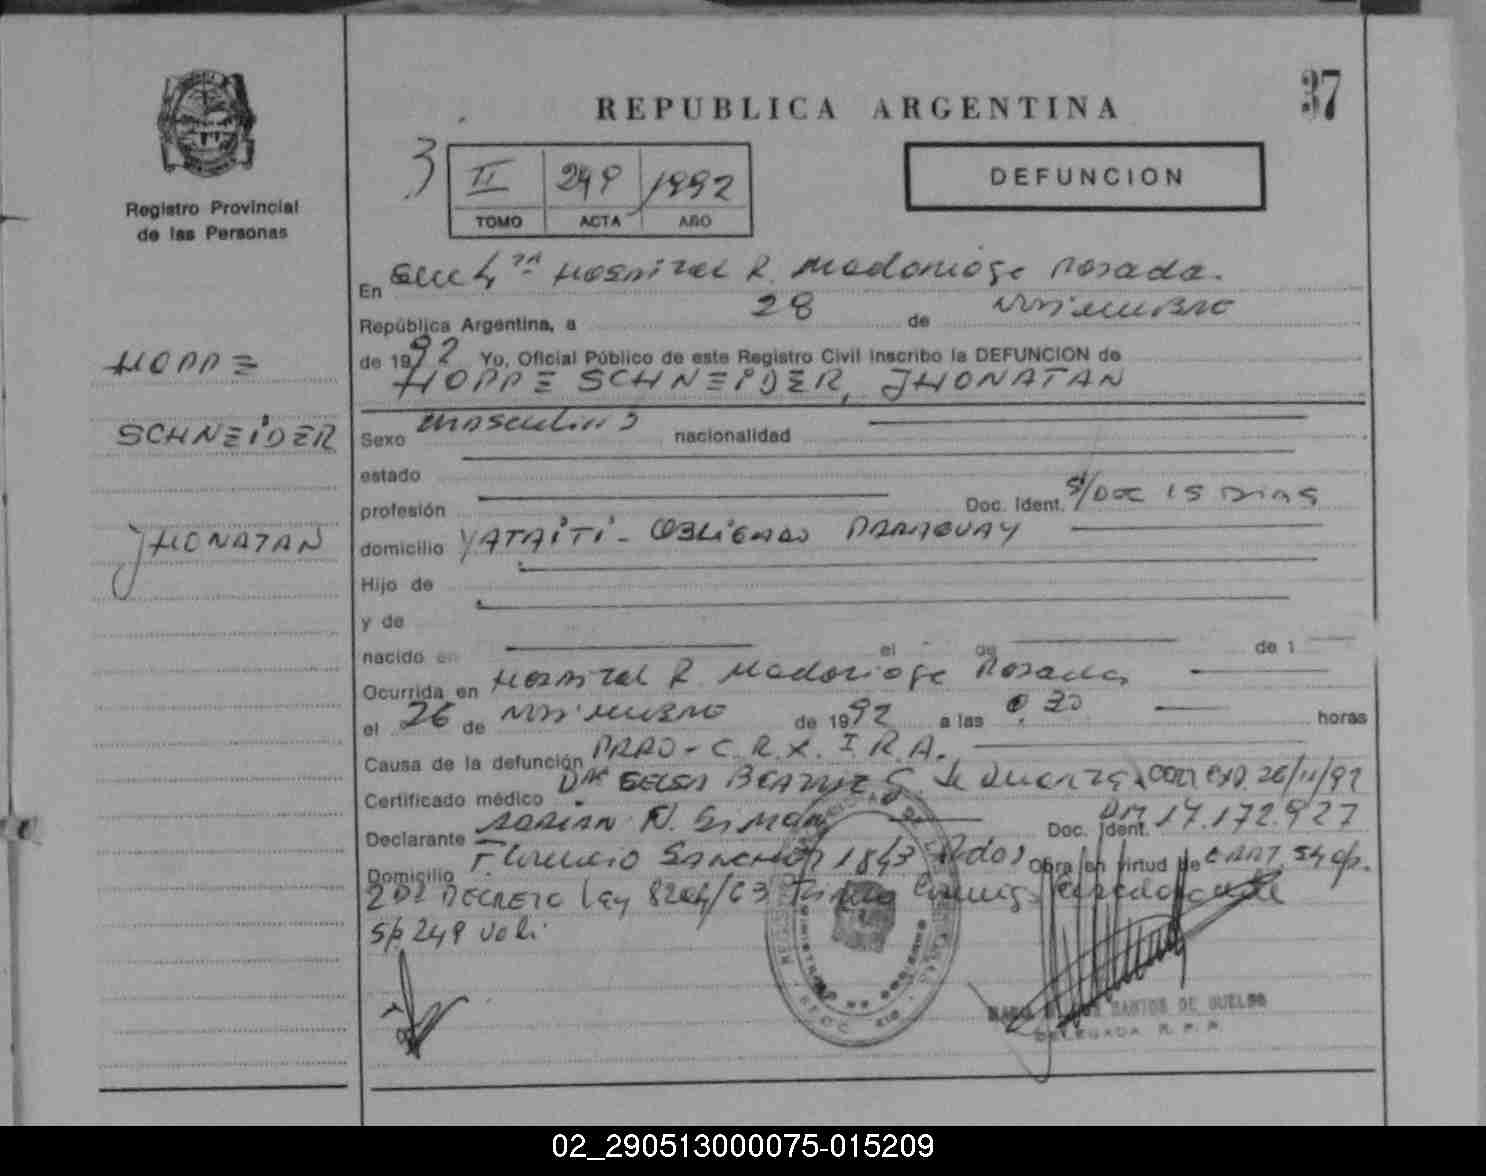 37
REPUBLICA ARGENTINA
Registro Provincial
de las Personas
3
II 249 1992
TOMO ACTA AÑO
DEFUNCION
En Secc 4 ta Hospital R. Madariaga Posadas.
República Argentina, a 28 de Noviembre
de 1992 Yo, Oficial Público de este Registro Civil inscribo la DEFUNCION de
HOPPE SCHNEIDER, JHONATAN
HOPPE
SCHNEIDER
JHONATAN
Sexo Masculino nacionalidad
estado
profesión Doc. Ident. S/DOC 15 DIAS
domicilio YATAITI - OBLIGADO PARAGUAY
Hijo de
y de
nacido en el de de 1
Ocurrida en Hospital R. Madariaga Posadas
el 26 de Noviembre de 1992 a las horas
Causa de la defunción PRAD - C.R.X. I.R.A.
Certificado médico DRA BEATRIZ G. de 26/11/92
Declarante ADRIAN N. SIMON Doc. Ident. DNI 17.172.927
Domicilio Florencio Sanchez 1843 Pdas Obra en virtud de CART. 54 o/p.
2 DEL DECRETO Ley 8204/63
S/p 249 vale.
SANTOS DE
DELEGADA R. P. P.
02_290513000075-015209